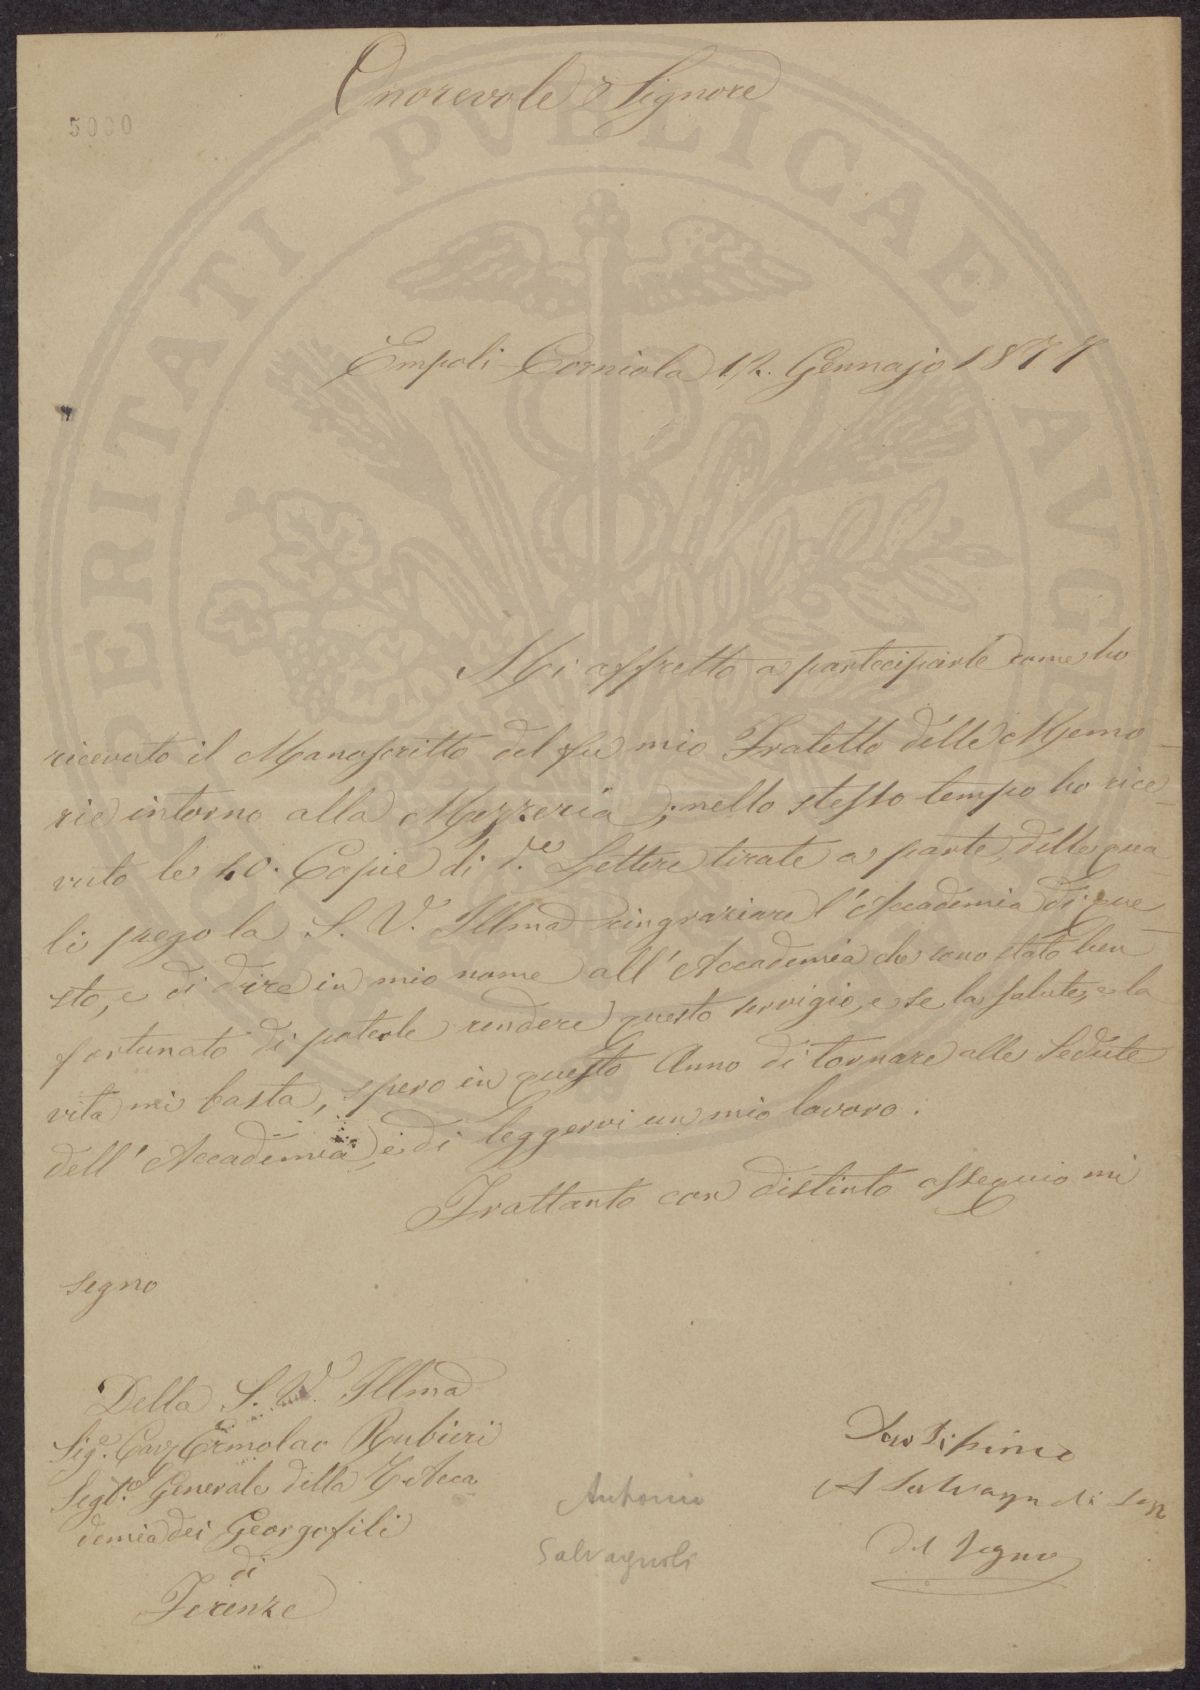 Onorevole Signore
5000
PROSPERITATI PVBLICAE AVGENDAE
Empoli Corniola 12. Gennajo 1877
Mi affretto a partecipirle come ho
ricevuto il Manoscritto del fu mio Fratello delle Memo-
rie intorno alla Mezzeria; nello stesso tempo ho rice-
vuto le 40. Copie di d.e Lettere tirate a parte, delle qua-
li prego la S. V. Illma ringraziare l'Accademia di que-
sto, e di dire in mio nome all'Accademia che sono stato ben
fortunato di poterle rendere questo servigio, e se la salute, e la
vita mi basta, spero in questo Anno di tornare alle Sedute
dell'Accademia, e di leggervi un mio lavoro.
Frattanto con distinto ossequio mi
segno
Della S. V. Illma
Sig.e Cav. Ermolao Rubieri
Seg.o Generale della R. Acca
demia dei Georgofili
di
Firenze
Devotissimo
A Salvagnoli
del Segno
Antonio
Salvagnoli